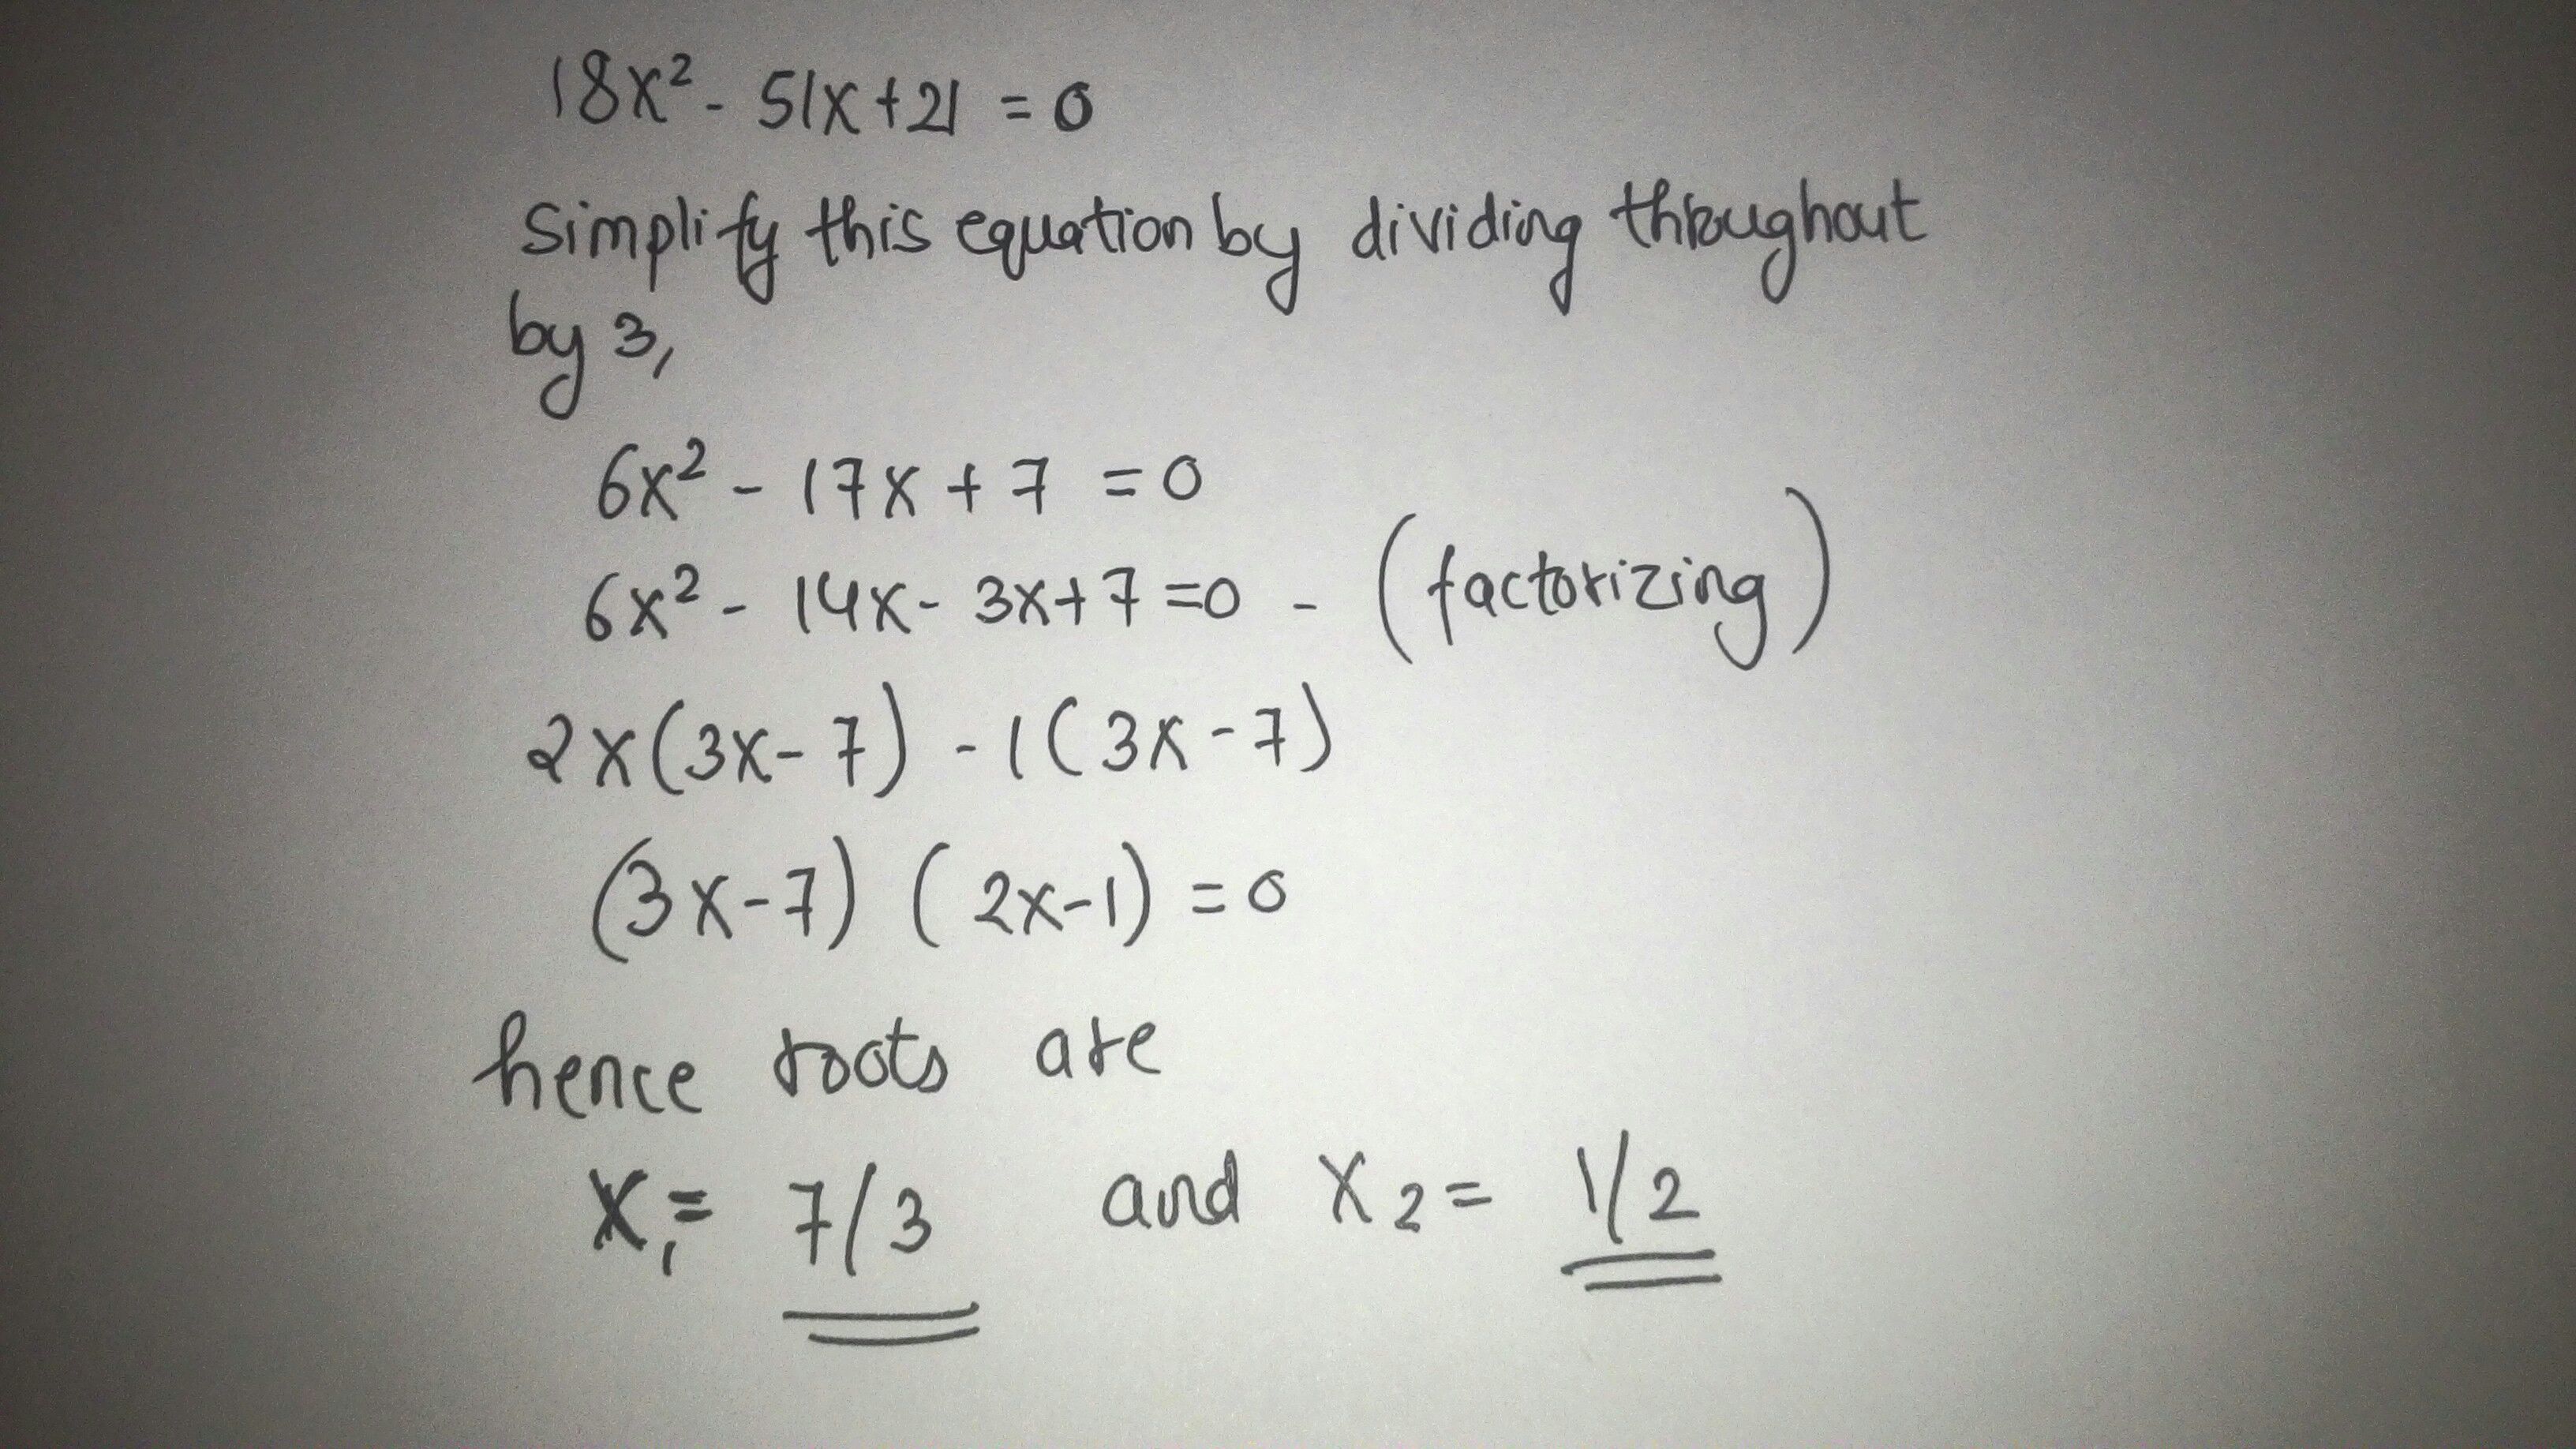 18x² - 51x + 21 = 0
Simplify this equation by dividing throughout
by 3,
6x² - 17x + 7 = 0
6x² - 14x - 3x + 7 = 0 - (factorizing)
2x(3x - 7) - 1(3x - 7)
(3x - 7) (2x - 1) = 0
hence roots are
x₁ = 7/3 and x₂ = 1/2